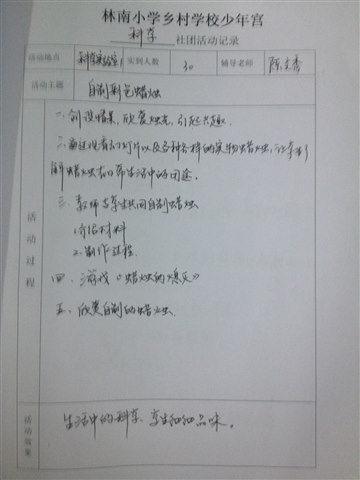 林南小学乡村学校少年宫
科学 社团活动记录
活动地点 科学实验室 实到人数 30 辅导老师 陈
活动主题 自制彩色蜡烛
活动过程
一、创设情景,欣赏烛光,引起兴趣.
二、通过观看幻灯片以及各种各样的实物蜡烛,让学生了
解蜡烛在日常生活中的用途.
三、教师与学生共同自制蜡烛
1.介绍材料
2.制作过程.
四、游戏《蜡烛的熄灭》
五、欣赏自制的蜡烛.
活动效果 生活中的科学,学生细细品味。